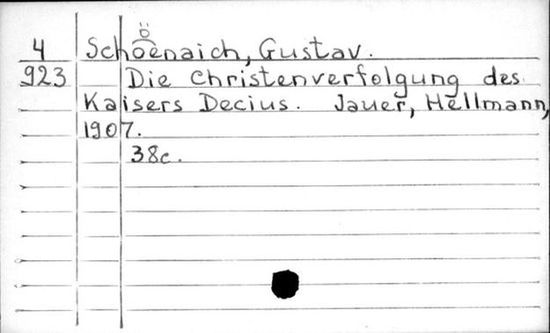 ö
4 Schoenaich, Gustav.
923 Die Christenverfolgung des
Kaisers Decius. Jauer, Hellmann,
1907.
38c.